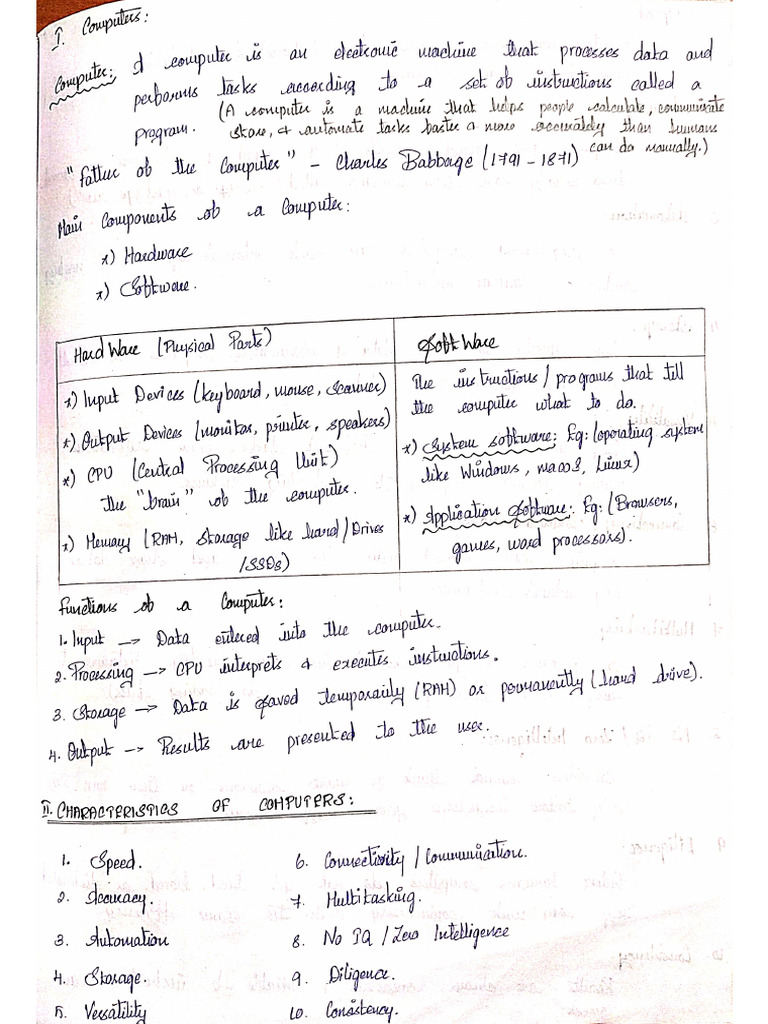 I. Computers:
Computer: A computer is an electronic machine that processes data and
performs tasks according to a set of instructions called a
program. (A computer is a machine that helps people calculate, communicate
store, & automate tasks faster & more accurately than humans
can do manually.)
"Father of the Computer" - Charles Babbage (1791 - 1871)
Main Components of a Computer:
*) Hardware
*) Software.
HardWare (Physical Parts)
*) Input Devices (keyboard, mouse, scanner)
*) Output Devices (monitor, printer, speakers)
*) CPU (Central Processing Unit)
the "brain" of the computer.
*) Memory (RAM, storage like hard / Drives
/SSDs)
SoftWare
The instructions / programs that tell
the computer what to do.
*) System software: Eg: (operating system
like Windows, macOS, Linux)
*) Application Software: Eg: (Browsers,
games, word processors).
Functions of a Computer:
1. Input → Data entered into the computer.
2. Processing → CPU interprets & executes instructions.
3. Storage → Data is saved temporarily (RAM) or permanently (hard drive).
4. Output → Results are presented to the user.
II. CHARACTERISTICS OF COMPUTERS:
1. Speed.
2. Accuracy.
3. Automation
4. Storage.
5. Versatility
6. Connectivity / Communication.
7. Multitasking.
8. No IQ / Zero Intelligence
9. Diligence.
10. Consistency.